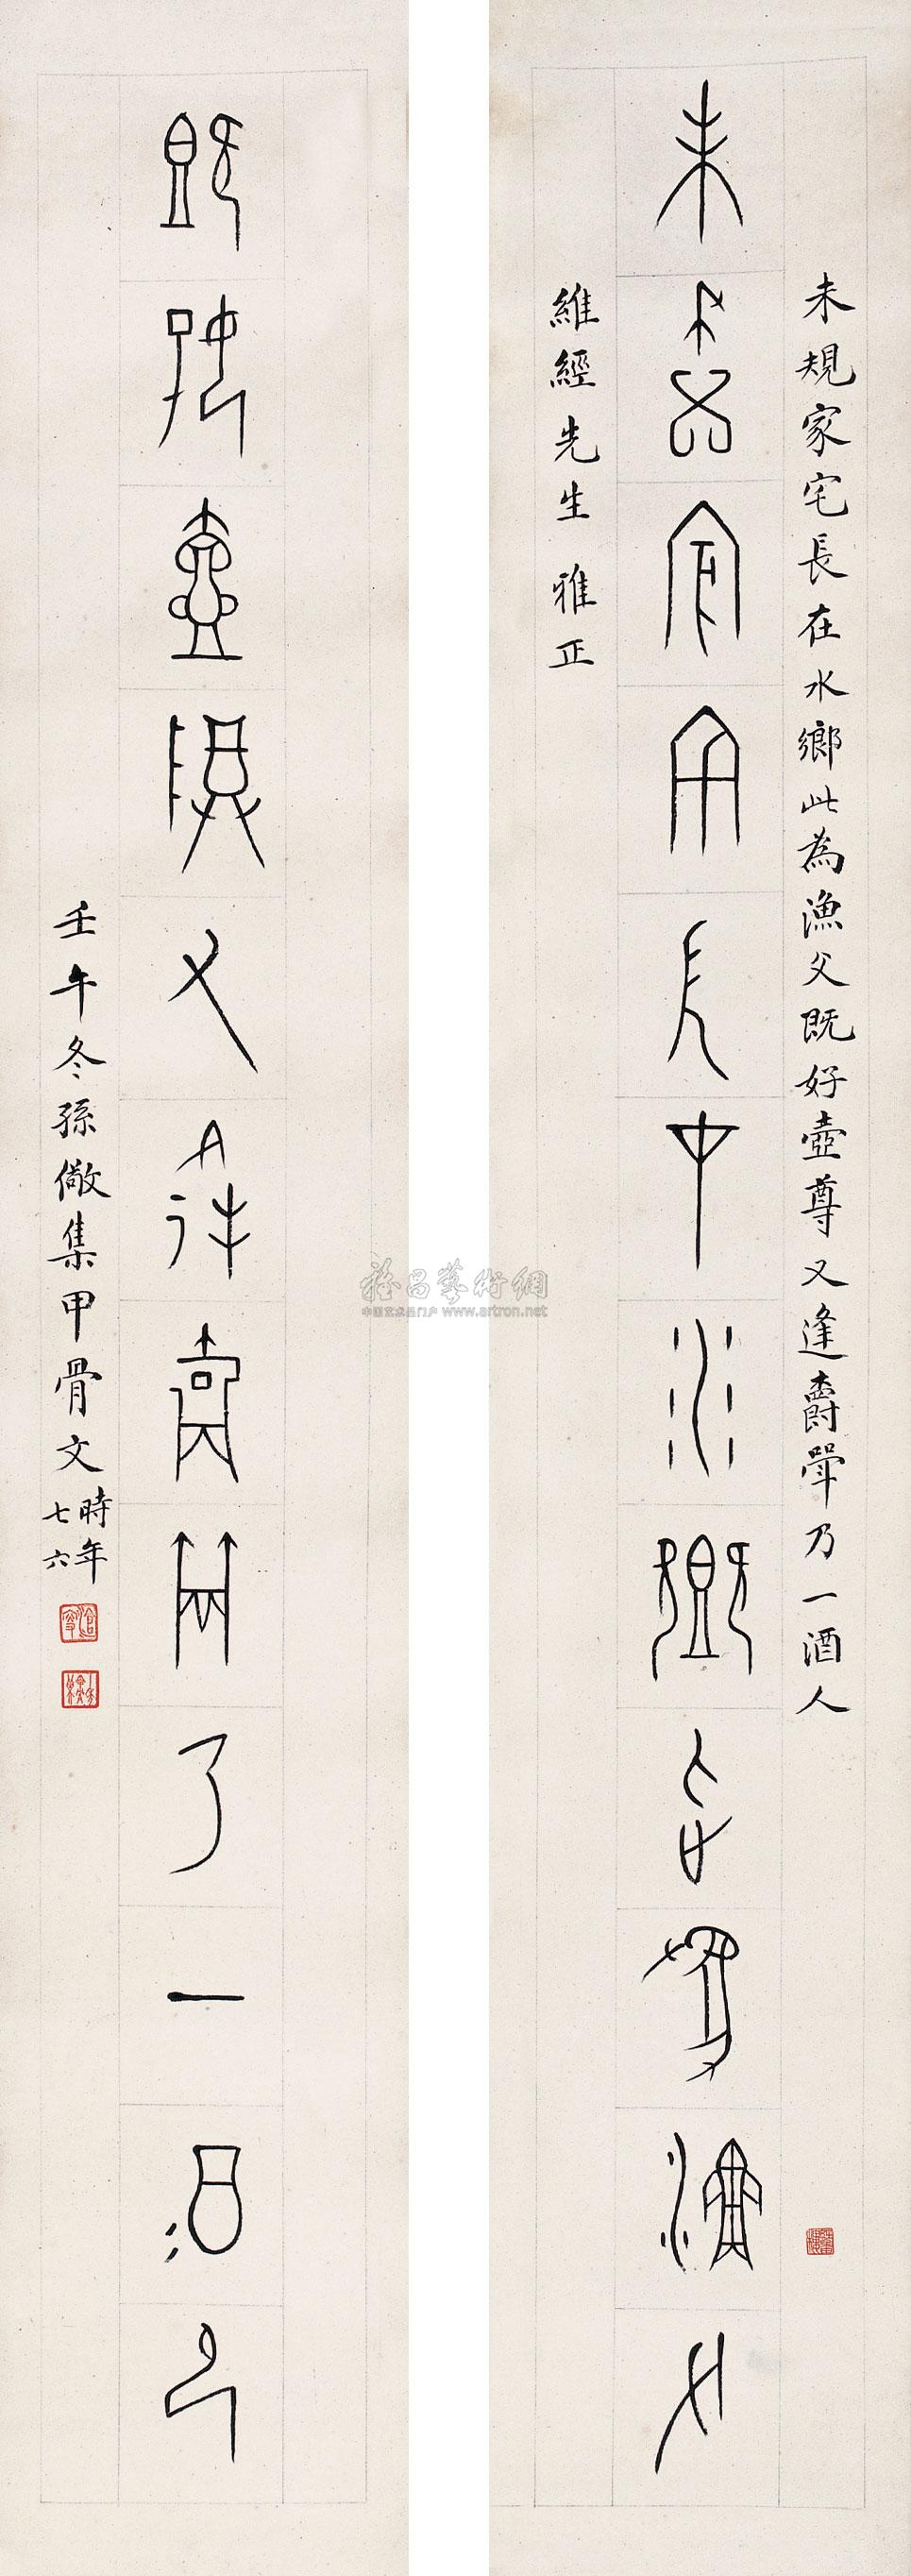 未規家宅長在水鄉此為漁父既好壺尊又逢爵斝乃一酒人
未規家宅長在水鄉此為漁父
維經先生 雅正
既好壺尊又逢爵斝乃一酒人
壬午冬孫儆集甲骨文時年七六
雅昌藝術網
中国艺术品门户 www.artron.net